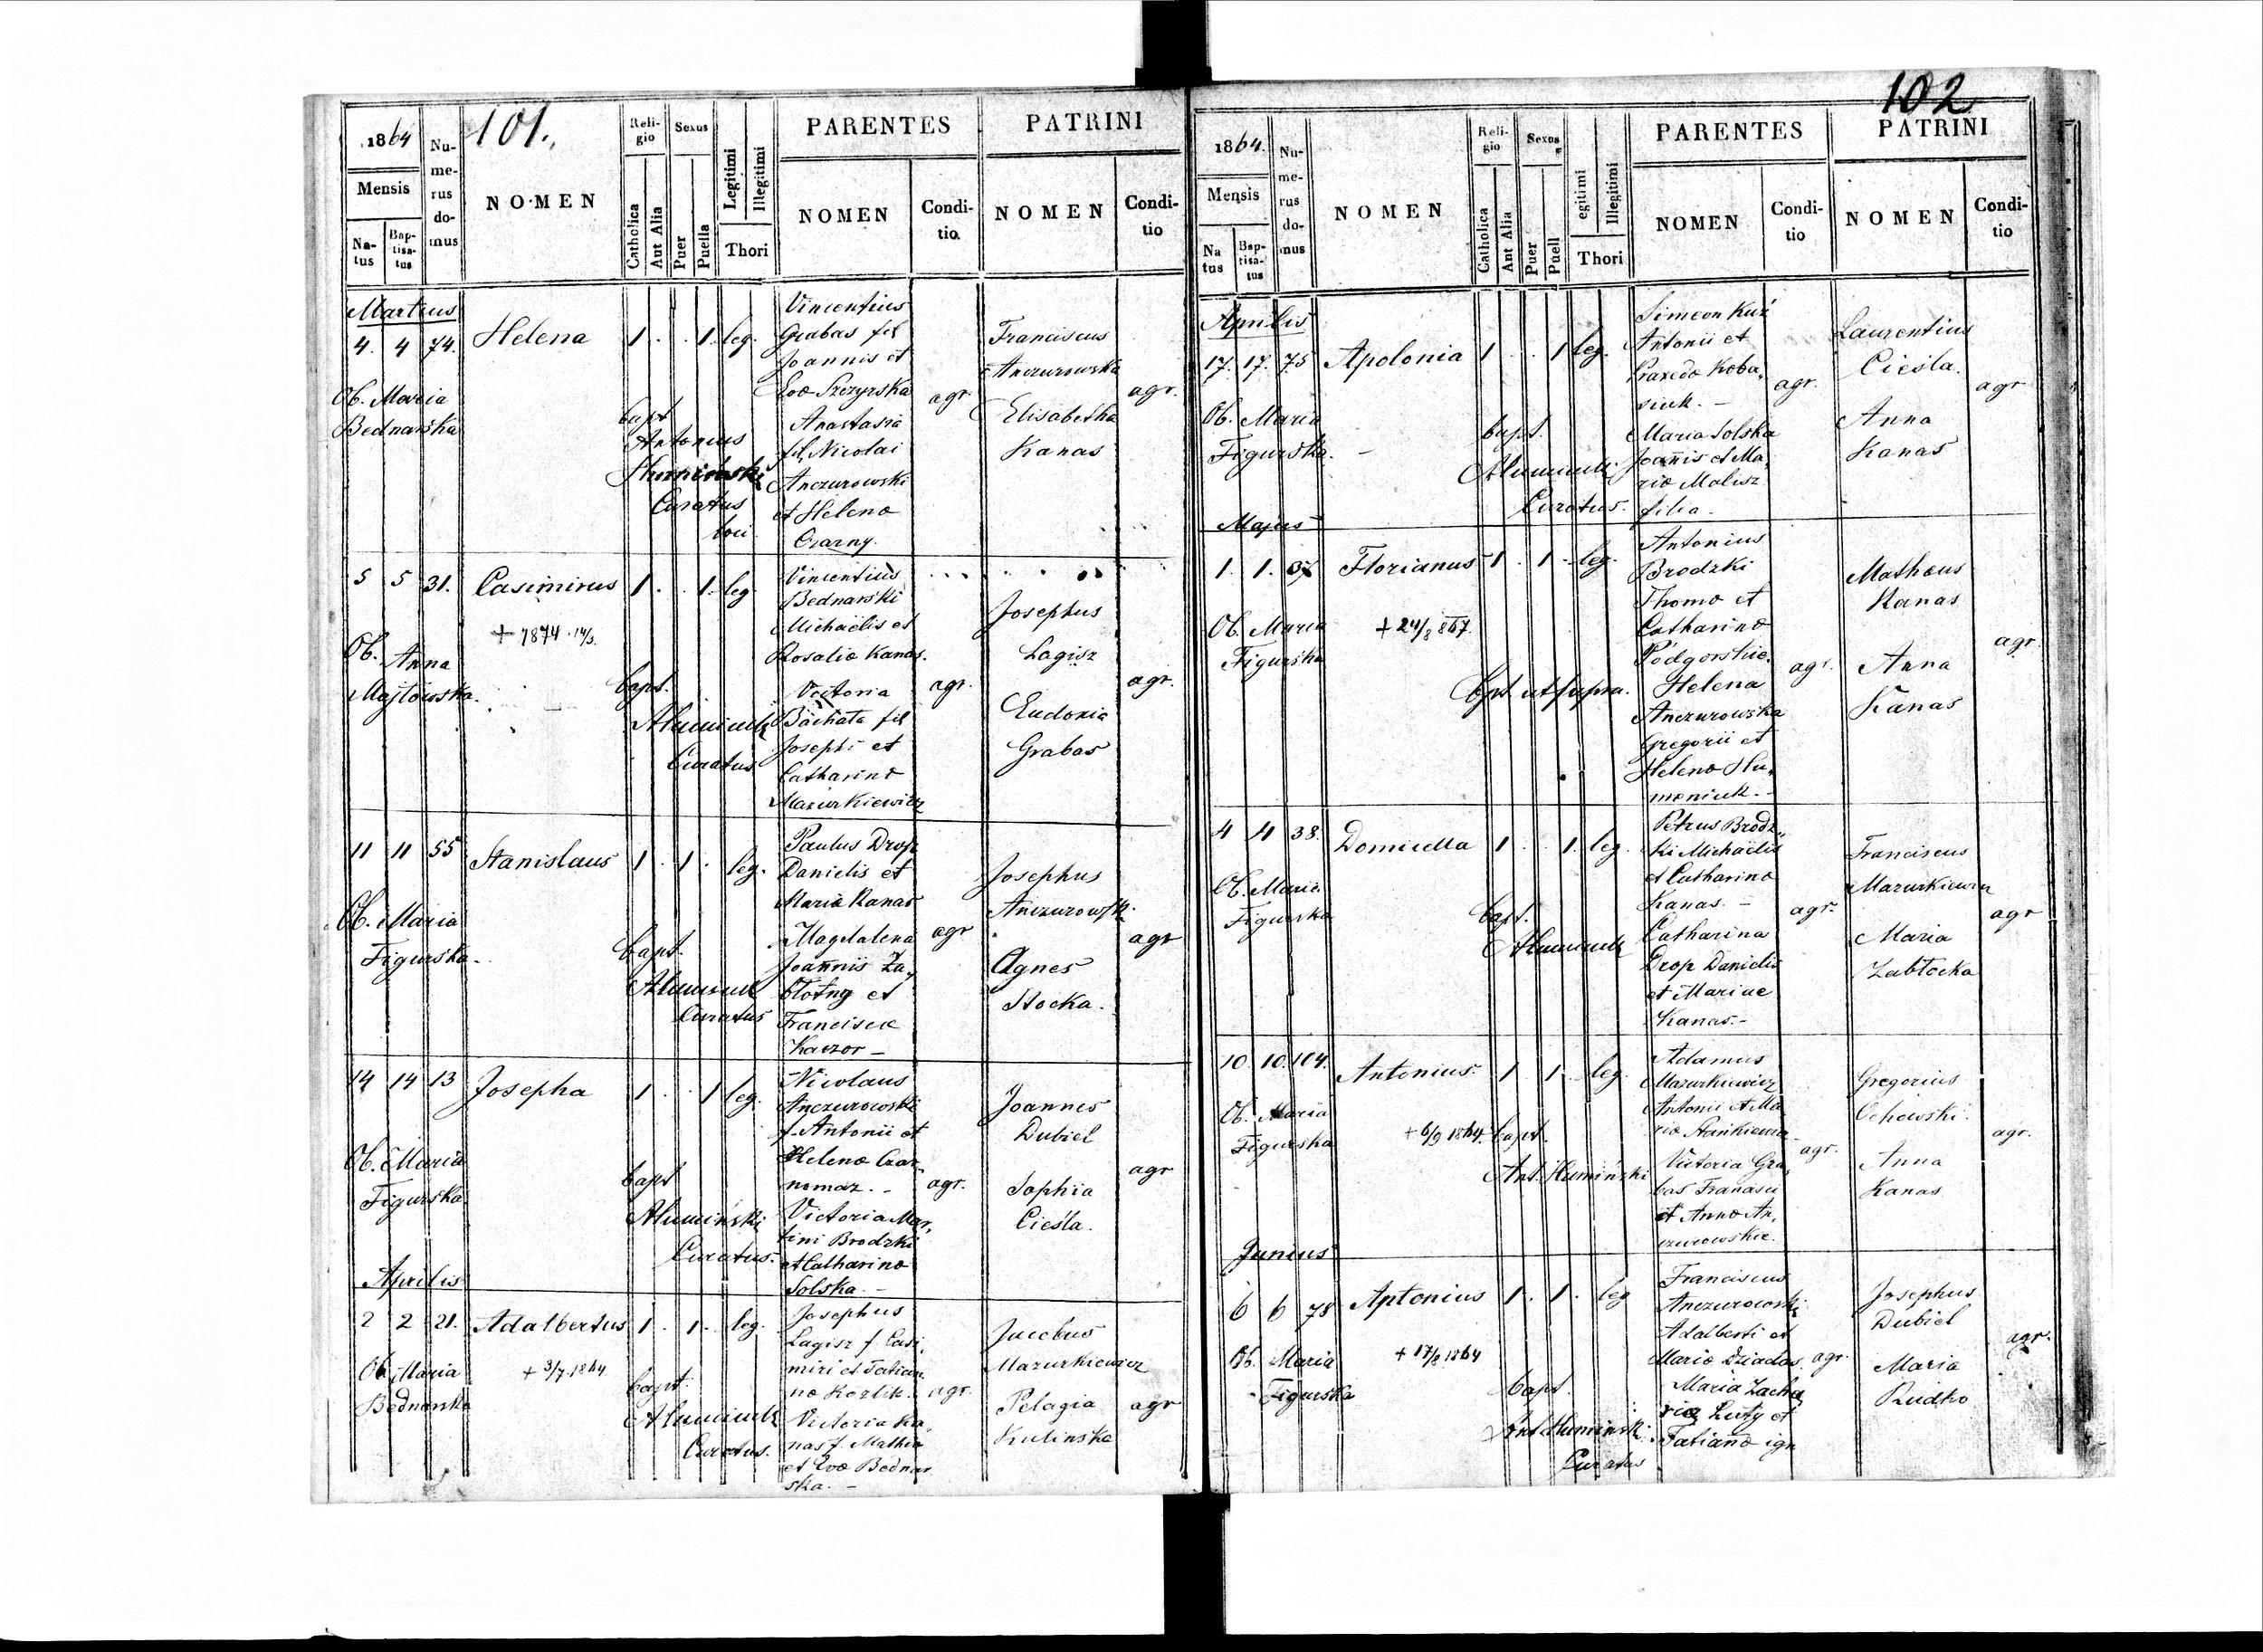 101.
1864
Mensis
Natus
Baptisatus
Numerus domus
NOMEN
Religio
Catholica
Aut Alia
Sexus
Puer
Puella
Legitimi
Illegitimi
Thori
PARENTES
NOMEN
Conditio.
PATRINI
NOMEN
Conditio
Martius
4. 4 74. Helena 1 . . 1. leg.
Ob. Maria
Bednarska
bapt
Antonius
Curatus
loci
Vincentius
Grabas fil
Joannis et
Evæ Szczyrska
Anastasia
fil. Nicolai
Anczurowski
et Helenæ
Czarny.
agr.
Franciscus
Anczurowska
Elisabetha
Kanas
agr.
5 5 31. Casimirus 1 . . 1. leg
+ 1874 14/3.
Ob. Anna
Majtowska.
bapt.
Curatus
Vincentius
Bednarski
Michaëlis et
Rosaliæ Kanas.
Victoria
Bachata fil
Josephi et
Catharinæ
Mazurkiewicz
agr.
Josephus
Lagisz
Eudoxia
Grabas
agr.
11 11 55 Stanislaus 1 . 1 . leg.
Ob. Maria
Figurska.
bapt.
Curatus
Paulus Drop
Danielis et
Mariæ Kanas
Magdalena
Joannis Za,
błotny et
Franciscæ
Kaczor –
agr
Josephus
Anczurowsk.
Agnes
Stocka.
agr
14 14 13 Josepha 1 . . 1 leg.
Ob. Maria
Figurska
bapt
Curatus.
Nicolaus
Anczurowski
f. Antonii et
Helenæ Czar
nomaz. –
Victoria Mar,
tini Brodzki
et Catharinæ
Solska. –
agr.
Joannes
Dubiel
Sophia
Cieśla.
agr
Aprilis
2 2 21. Adalbertus 1 . 1. leg.
Ob. Maria
Bednarska
+ 3/7 1864
bapt.
Curatus.
Josephus
Lagisz f. Casi,
miri et Tatian
næ Kozlik.
Victoria Ka,
nas f. Mathiæ
et Evæ Bednar
ska. –
agr.
Jacobus
Mazurkiewicz
Pelagia
Kulinska
agr
102
1864.
Mensis
Natus
Baptisatus
Numerus domus
NOMEN
Religio
Catholica
Aut Alia
Sexus
Puer
Puell
egitimi
Illegitimi
Thori
PARENTES
NOMEN
Conditio
PATRINI
NOMEN
Conditio
Aprilis
17. 17. 75 Apolonia 1 . . 1 leg.
Ob. Maria
Figurska. –
bapt.
Curatus.
Simeon Kuź
Antonii et
Praxedæ Koba,
siuk. –
Maria Solska
Joannis et Ma,
riæ Malisz
filia –
agr.
Laurentius
Cieśla.
Anna
Kanas
agr
Majus
1. 1. 37 Florianus 1 . 1 . leg.
+ 24/8 867.
Ob. Maria
Figurska
bpt. ut supra.
Antonius
Brodzki
Thomæ et
Catharinæ
Podgorskie.
Helena
Anczurowska
Gregorii et
Helenæ Hu,
meniuk. –
agr.
Matheus
Kanas
Anna
Kanas
agr
4 4 38. Domicella 1 . . 1. leg.
Ob. Maria
Figurska
bapt.
Petrus Brodz,
ki Michaëlis
et Catharinæ
Kanas. –
Catharina
Drop Danielis
et Mariae
Kanas. –
agr.
Franciscus
Mazurkiewicz
Maria
Zabłocka
agr
10. 10. 104. Antonius 1 . 1. leg.
Ob. Maria
Figurska
+ 6/9 1864.
bapt.
Ant. Humiński
Adamus
Mazurkiewicz
Antonii et Ma
riæ Stankiewicz
Victoria Gra,
bas Francisci
et Annæ An,
czurowskie.
agr.
Gregorius
Cichowski.
Anna
Kanas
agr.
Junius
6 6 78 Antonius 1 . 1. leg
Ob. Maria
Figurska
+ 17/8 1864
bapt.
Ant Humiński
Curatus
Franciscus
Anczurowski
Adalberti et
Mariæ Dziadas
Maria Zacha
riæ Luty et
Tatianæ ign
agr.
Josephus
Dubiel
Maria
Rudko
agr.